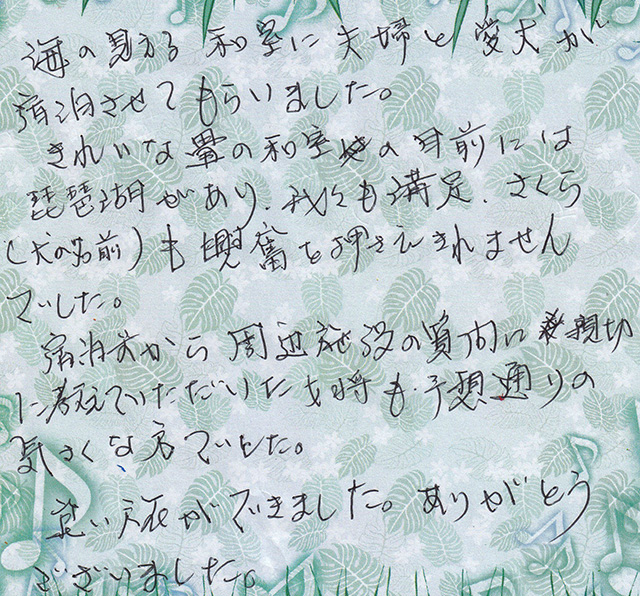 海の見える 和室に 夫婦と 愛犬が
宿泊させて もらいました。
きれいな 畳の和室の 目前には
琵琶湖があり、我々も満足、さくら
(犬の名前)も 興奮を押さえきれません
でした。
宿泊前から 周辺施設の質問に 親切
に教えていただいた女将も 予想通りの
気さくな方でした。
良い旅ができました。ありがとう
ございました。